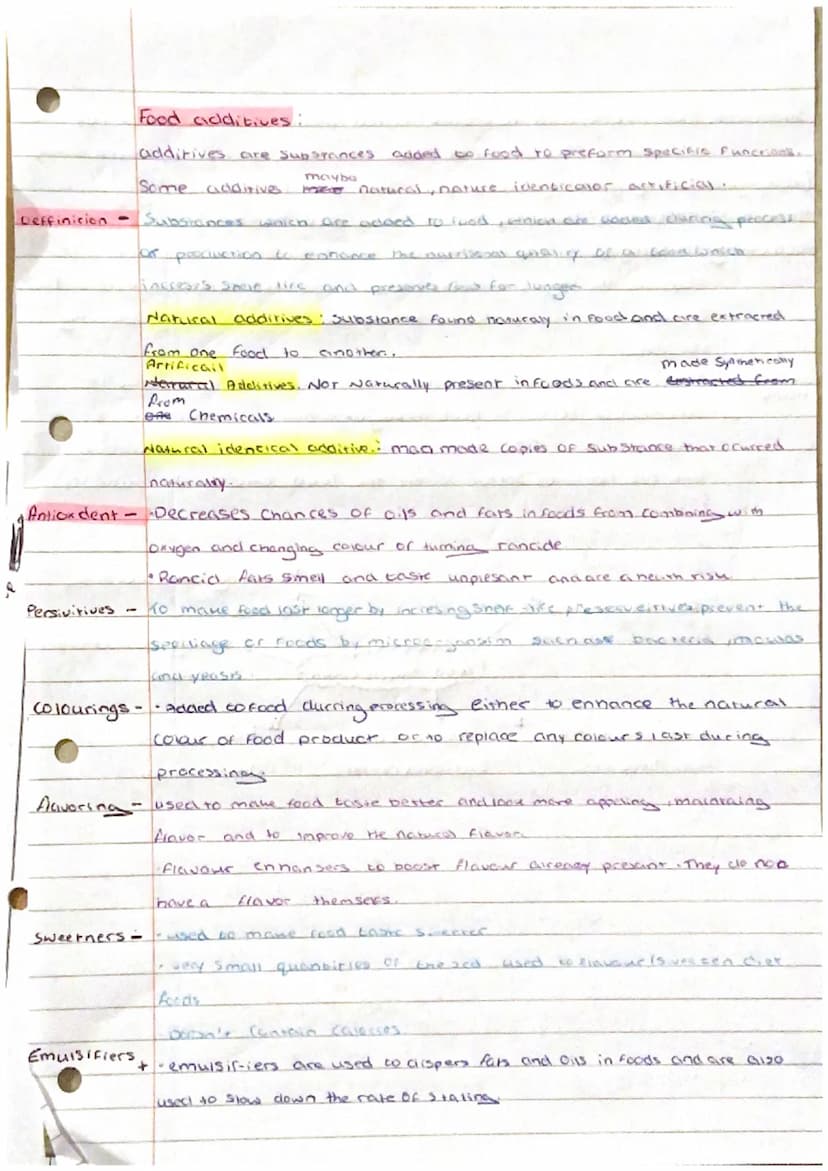 Food additives:
additives are substances added to food to preform specific functions.
maybe
Some additives natural, nature identical or artificial.
Deffinition - Substances which are added to food, which are added during process
or production to enhance the nutritional quality of a food which
increas's shelf life and preserves food for longer
Natural additives: Substance found naturaly in food and are extracted
from one food to another.
Artificail made Symthetically
Natural Additives. Not Naturally present in foods and are extracted from
from
one Chemicals
Natural identical additive: man made copies of substance that occurred
naturally.
Antioxdent - ·Decreases chances of oils and fats in foods from combining with
oxygen and changing colour or turning rancide
·Rancid fats smell and taste unplesant and are a health risk
Persivitives - To make food last longer by incresing shelf life preseveitives prevent the
spoilage of foods by such as bacteria, moulds
and yeasts
Colourings - ·added to food durring processing either to enhance the natural
colour of food product or to replace any colours lost during
processing.
flavoring - used to make food taste better and look more , maintaing
flavor and to improve the natural flavor
·Flavour enhansers to boost flavour already present. They do not
have a flavor themselfs.
Sweetners - ·used to make food taste sweeter
·very small quantities of used to flavour/sweeten diet
foods
Doesn't contain calories
Emulsifiers + ·emulsifiers are used to dispers fats and oils in foods and are also
used to slow down the rate of staling